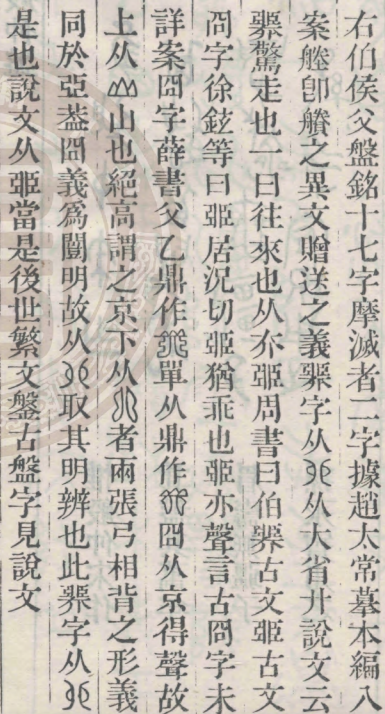 右伯侯父盤銘十七字摩滅者二字據趙太常摹本編入
案卽賸之異文贈送之義臩字从从大省廾說文云
臩驚走也一曰往來也从夰臦周書曰伯臩古文臦古文
冏字徐鉉等曰臦居況切臦猶乖也臦亦聲言古冏字未
詳案囧字薛書父乙鼎作單从鼎作囧从京得聲故
上从山也絕高謂之京下从者兩張弓相背之形義
同於亞葢囧義爲闓明故从取其明辨也此臩字从
是也說文从臦當是後世繁文盤古盤字見說文